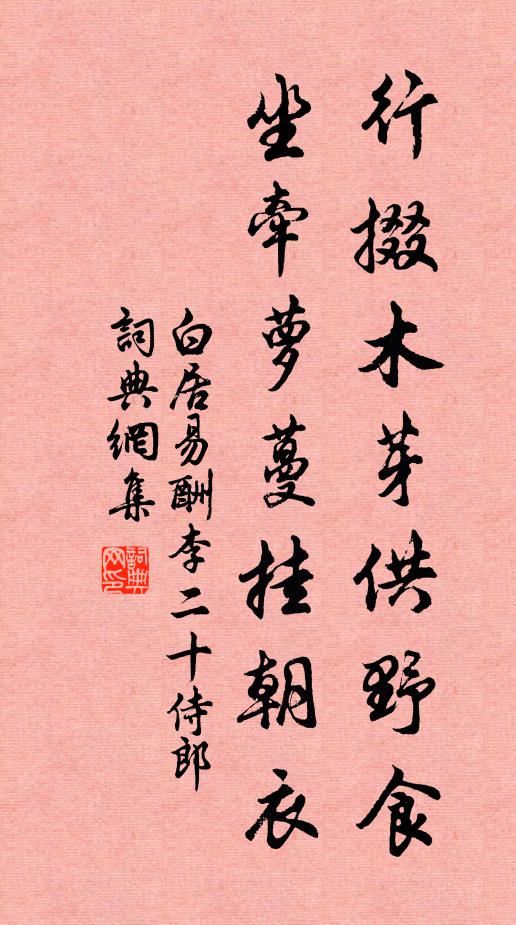 行掇木芽供野食
坐牽萝蔓挂朝衣
白居易酬李二十侍郎
詞典網集
詞典网印